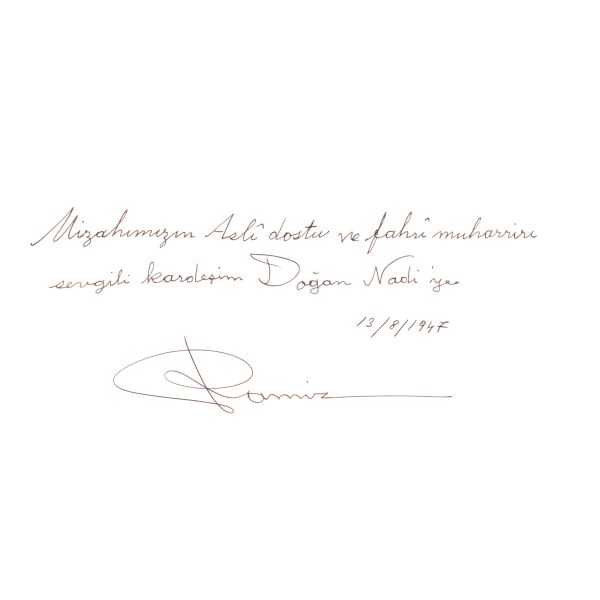 Mizahımızın Aslî dostu ve fahrî muharriri
sevgili kardeşim Doğan Nadi'ye
13/8/1947
Ramiz